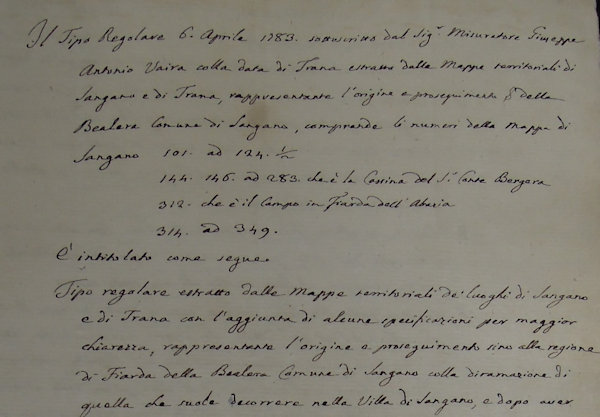 Il Tipo Regolare 6. Aprile 1783. sottoscritto dal Sig.r Misuratore Giuseppe
Antonio Vaira colla data di Trana estratto dalle Mappe territoriali di
Sangano e di Trana, rappresentante l'origine e proseguimento della
Bealera Comune di Sangano, comprende li numeri della mappa di
Sangano 101. ad 124. 1/2
144. 146. ad 283. che è la Cassina del S.r Conte Bergera
312. che è il Campo in Fiarda dell'Abazia
314. ad 349.
È intitolato come segue.
Tipo regolare estratto dalle Mappe territoriali de' luoghi di Sangano
e di Trana con l'aggiunta di alcune specificazioni per maggior
chiarezza, rappresentante l'origine e proseguimento sino alla regione
di Fiarda della Bealera Comune di Sangano colla diramazione di
quella che suole decorrere nella Villa di Sangano, e dopo aver